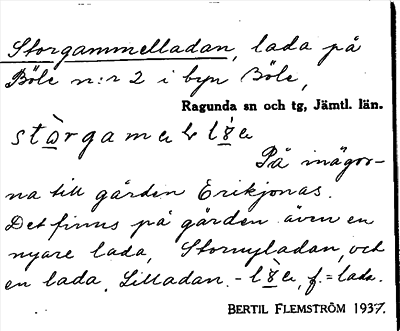 Storgammelladan, lada på
Böle n:r 2 i byn Böle,
Ragunda sn och tg, Jämtl. län.
På inägor-
na till gården Erikjonas.
Det finns på gården även en
nyare lada, Stornyladan, och
en lada, Lilladan. - f. = lada.
BERTIL FLEMSTRÖM 1937.